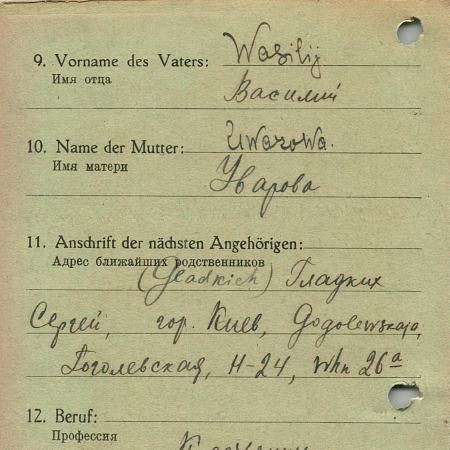 9. Vorname des Vaters: Wasilij
Имя отца Василий
10. Name der Mutter: Uwarowa.
Имя матери Уварова
11. Anschrift der nächsten Angehörigen:
Адрес ближайших родственников
(Gladkich) Гладких
Сергей, гор. Киев, Gogolewskaja,
Гоголевская, H-24, Whn 26a
12. Beruf:
Профессия